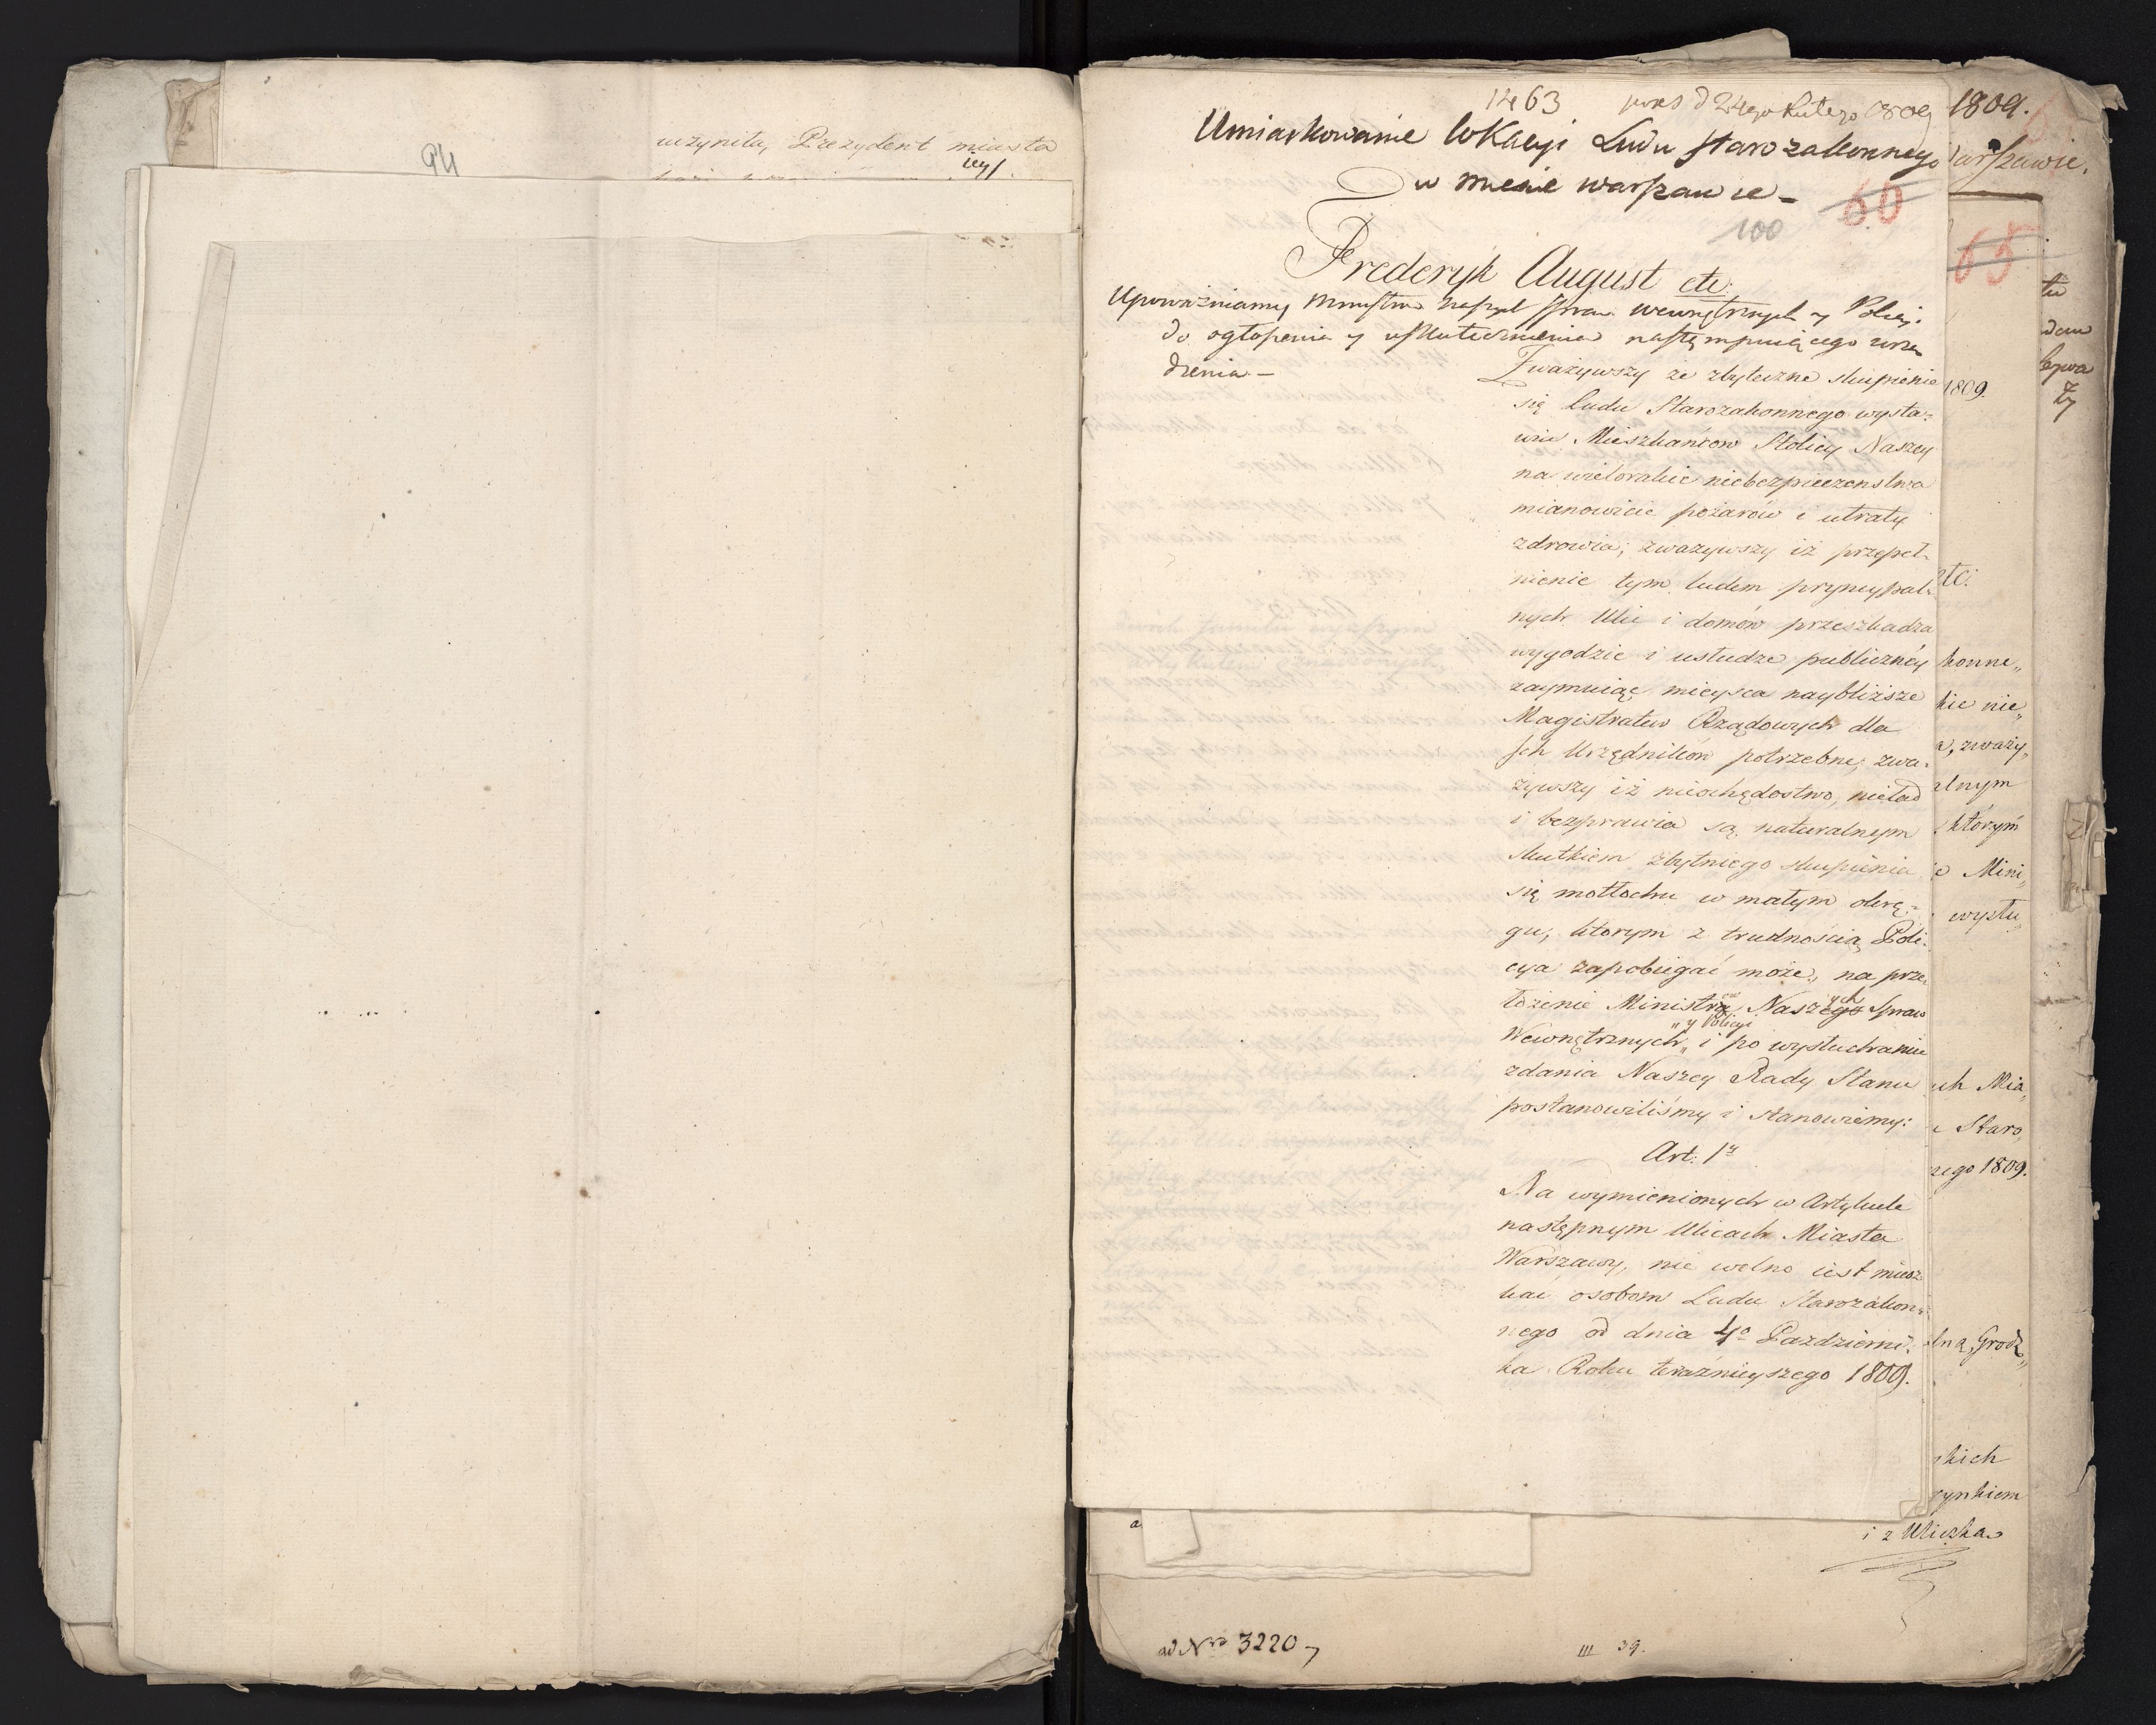 94
uczyniła, Prezydent miasta
iey/.
1463
d 24go Lutego 1809
Umiarkowanie lokacyi Ludu starozakonnego
w miescie warszawie -
60
100
Frederyk August etc:
Upoważniamy Ministrow naszych spraw wewnętrznych y Policyi
do ogłoszenia y uskutecznienia następuiącego urzą
dzenia -
Zważywszy że zbyteczne skupienie
się Ludu Starozakonnego wysta-
wia Mieszkańcow Stolicy Naszey
na wielorakie niebezpieczenstwa
mianowicie pożarów i utraty
zdrowia; zważywszy iż przepeł-
nienie tym ludem pryncypal-
nych Ulic i domów przeszkadza
wygodzie i usłudze publiczney
zaymuiąc mieysca naybliższe
Magistratur Rządowych dla
Jch Urzędników potrzebne, zwa-
żywszy iż niechędostwo, nieład
i bezprawia są naturalnym
skutkiem zbytniego skupienia
się motłochu w małym okrę-
gu, ktorym z trudnością Poli-
cya zapobiegać może, na prze
łożenie Ministrów Naszych Spraw
"y Policyi
Wewnętrznych" i po wysłuchaniu
zdania Naszey Rady Stanu
postanowiliśmy i stanowiemy:
Art: 1y
Na wymienionych w Artykule
następnym Ulicach Miasta
Warszawy, nie wolno iest miesz
kać osobom Ludu Starozakon-
nego od dnia 1go Pazdzierni-
ka Roku teraźnieyszego 1809.
1809.
arszawie.
65
1809.
etc:
konne„
kie nie„
a, zważy„
alnym
którym
Mini„
wysłu„
uh Mia„
Staro„
nego 1809.
lną, Grodz„
skich
rynkiem
i z Uliczka
ad Nro 3220
III 39.